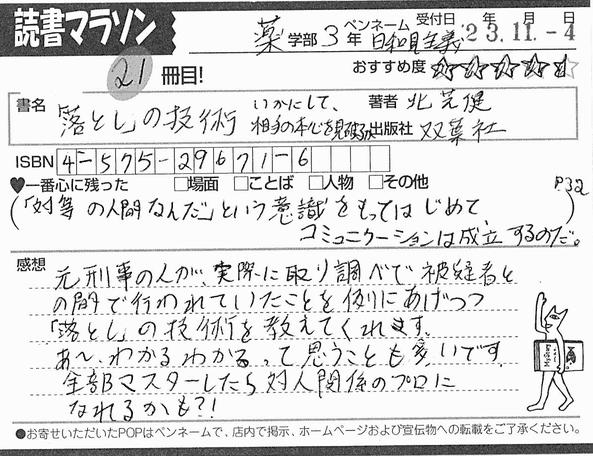 読書マラソン
薬学部 3年 ペンネーム 日和見主義 受付日 23.11.-4 年 月 日
21 冊目!
おすすめ度 ☆☆☆☆☆
書名 「落とし」の技術 いかにして、相手の本心を見破るか 著者 北芝健
出版社 双葉社
ISBN 4-575-29671-6
♥一番心に残った □場面 □ことば □人物 □その他
(「対等の人間なんだ」という意識をもってはじめて、 P32
コミュニケーションは成立するのだ。
感想
元刑事の人が、実際に取り調べで被疑者と
の間で行われていたことを例にあげつつ
「落とし」の技術を教えてくれます。
あ〜、わかるわかるって思うことも多いです。
全部マスターしたら対人関係のプロに
なれるかも?!
●お寄せいただいたPOPはペンネームで、店内で掲示、ホームページおよび宣伝物への転載をご了承ください。